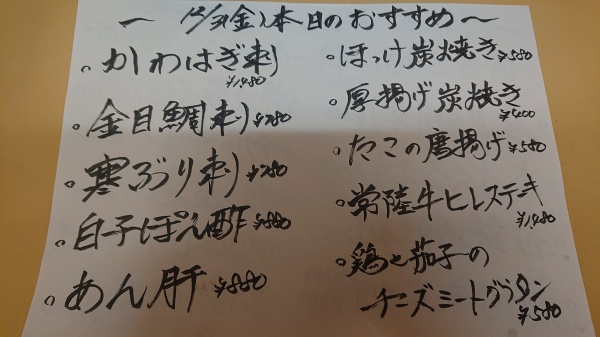 〜 12/3(金)本日のおすすめ〜
。かわはぎ刺
¥1,480
。金目鯛刺 ¥780
。寒ぶり刺 ¥780
。白子ぽん酢 ¥880
。あん肝 ¥880
。ほっけ炭焼き ¥580
。厚揚げ炭焼き
¥400
。たこの唐揚げ ¥580
。常陸牛ヒレステーキ
¥1,480
。鶏と茄子の
チーズミートグラタン
¥580